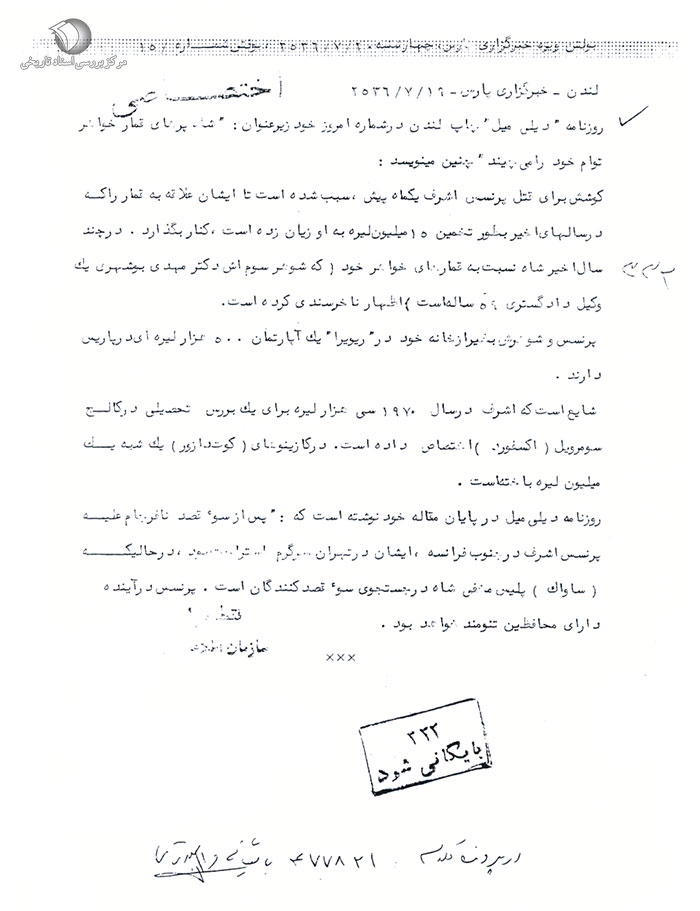 بولتن ویژه خبرگزاری پارس، چهارشنبه ۲۵۳۶/۷/۲۰، بولتن شماره ۱۵۰
مرکز بررسی اسناد تاریخی
اختصاصی
لندن - خبرگزاری پارس - ۲۵۳۶/۷/۱۹
روزنامه "دیلی میل" چاپ لندن در شماره امروز خود زیر عنوان: "شاه پرهای قمار خواهر
توام خود را می‌چیند" چنین مینویسد :
کوشش برای قتل پرنسس اشرف یکماه پیش ، سبب شده است تا ایشان علاقه به قمار را که
در سالهای اخیر بطور تخمین ۱۵ میلیون لیره به او زیان زده است ، کنار بگذارد . در چند
سال اخیر شاه نسبت به قمارهای خواهر خود ( که شوهر سوم اش دکتر مهدی بوشهری یک
وکیل دادگستری ۵۹ ساله است ) اظهار ناخرسندی کرده است.
پرنسس و شوهرش بغیر از خانه خود در "ریویرا" یک آپارتمان ۵۰۰ هزار لیره ای در پاریس
دارند .
شایع است که اشرف در سال ۱۹۷۰ سی هزار لیره برای یک بورس تحصیلی در کالج
سومرویل ( اکسفورد ) اختصاص داده است. در کازینوهای ( کوت دازور ) یک شبه یک
میلیون لیره باخته است .
روزنامه دیلی میل در پایان مقاله خود نوشته است که : "پس از سوء قصد نافرجام علیه
پرنسس اشرف در جنوب فرانسه ، ایشان در تهران سرگرم استراحت بود ، در حالیکه
( ساواک ) پلیس مخفی شاه در جستجوی سوء قصد کنندگان است . پرنسس در آینده
دارای محافظین تنومند خواهد بود .
فقط
سازمان اطلاعات
×××
۳۳۳
بایگانی شود
در پرونده کلاسه ۴۷۷۸۲۱ بایگانی